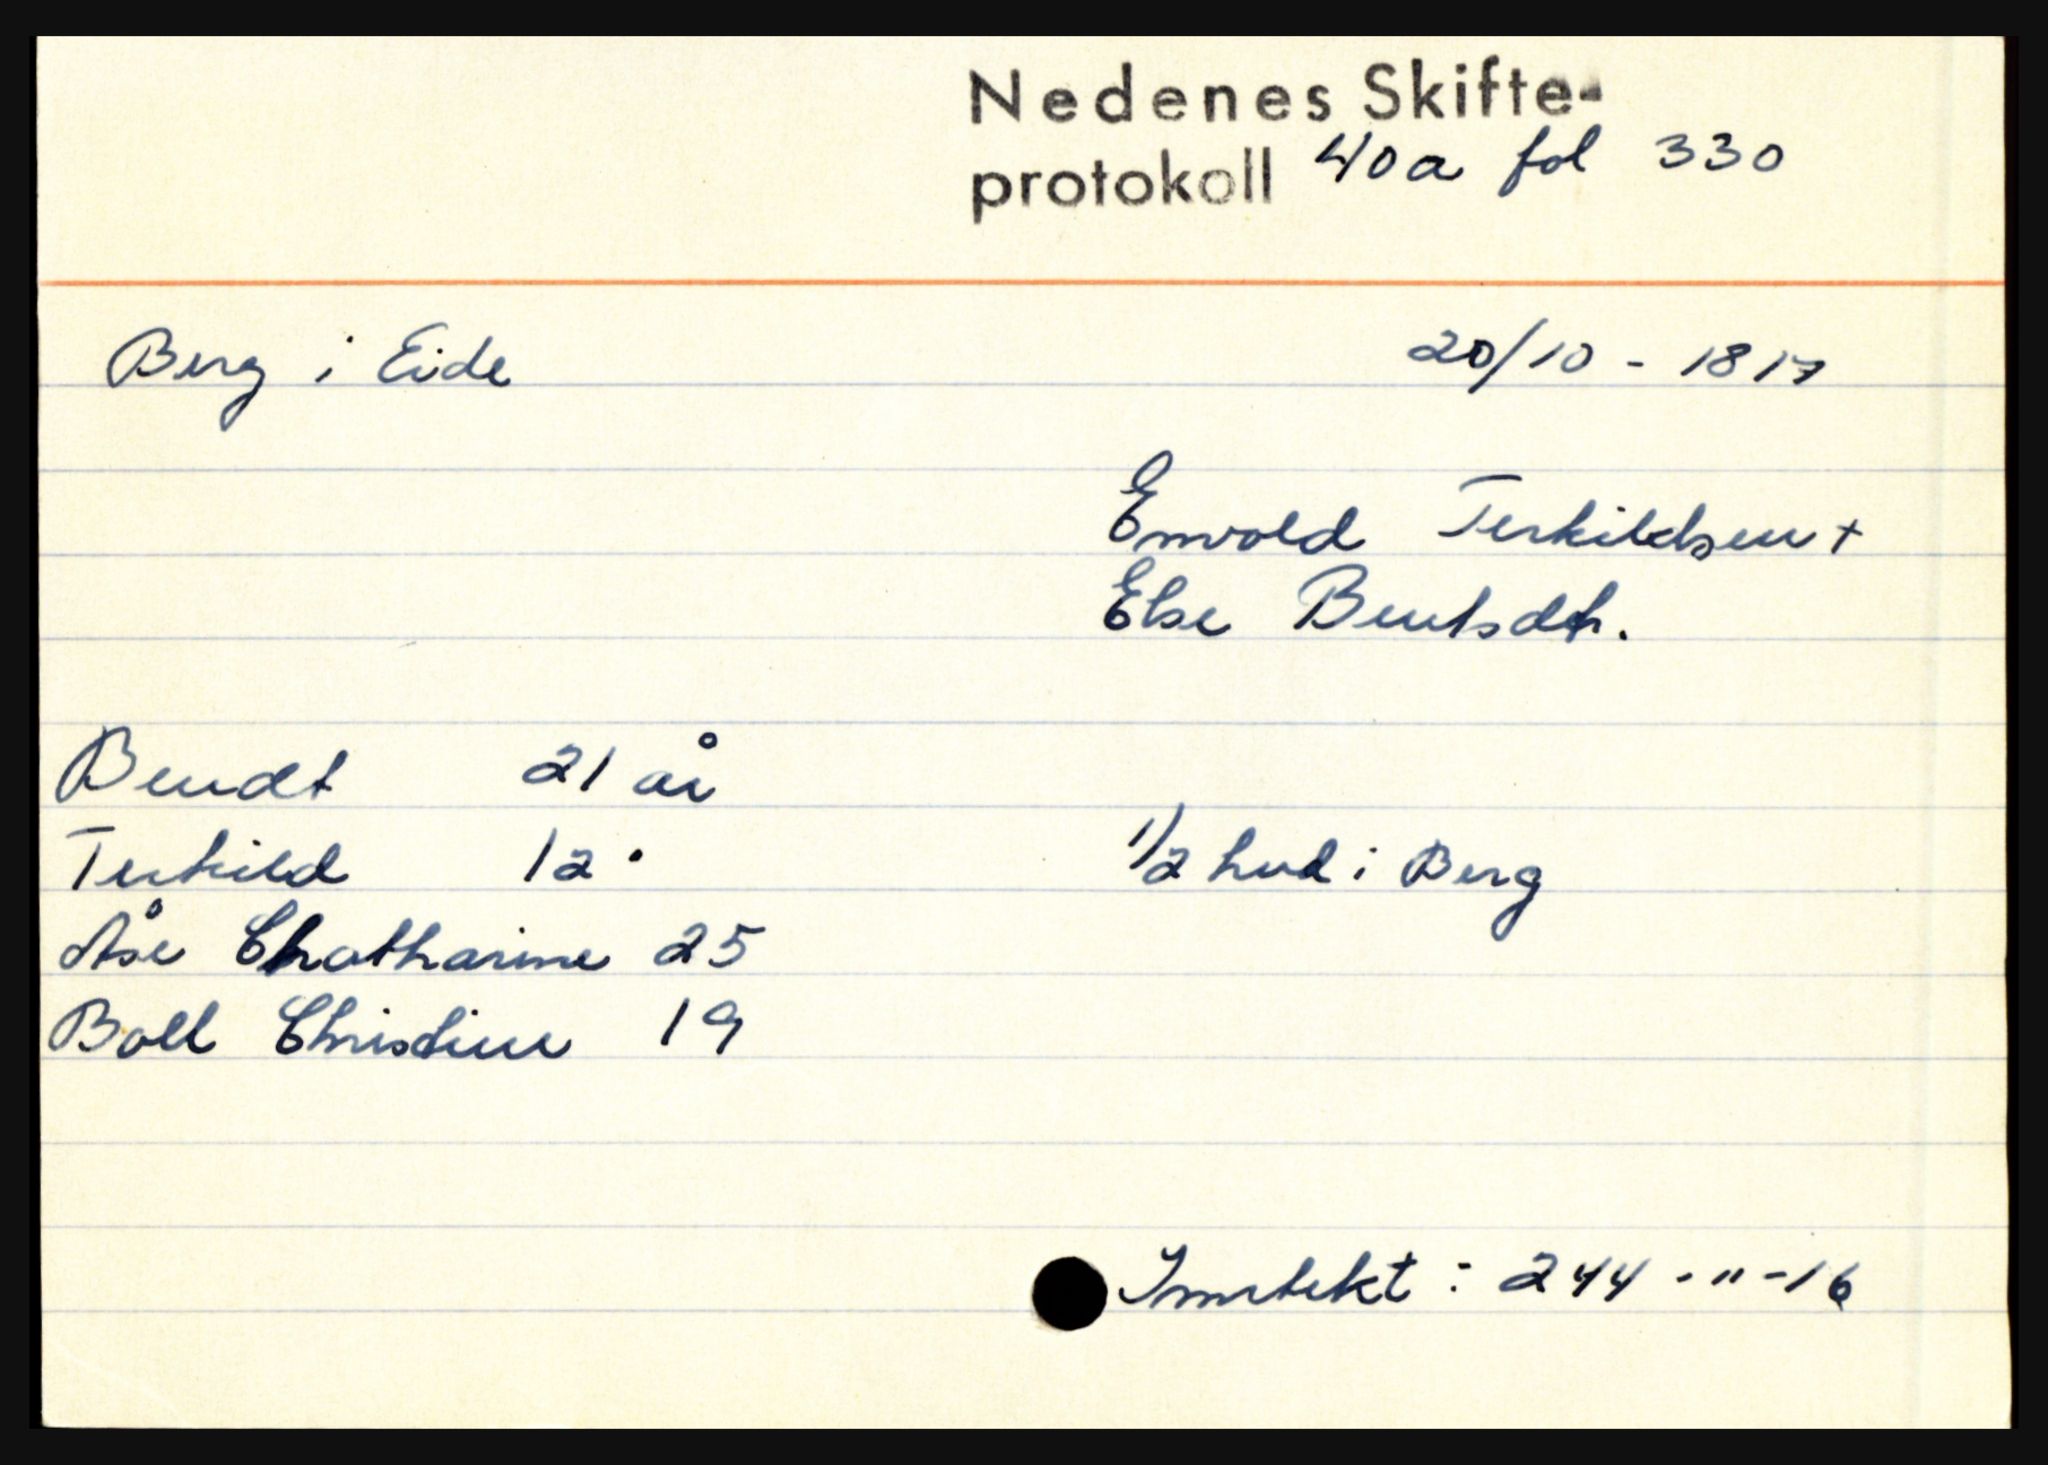 Nedenes Skifte-
protokoll 40a fol 330
Berg i Eide 20/10 - 1817
Envold Terkildsen +
Else Bentsdtr.
Bendt 21 år
Terkild 12 "
Åse Chatharine 25
Boll Christine 19
1/2 hud i Berg
Inntekt : 244 - " - 16